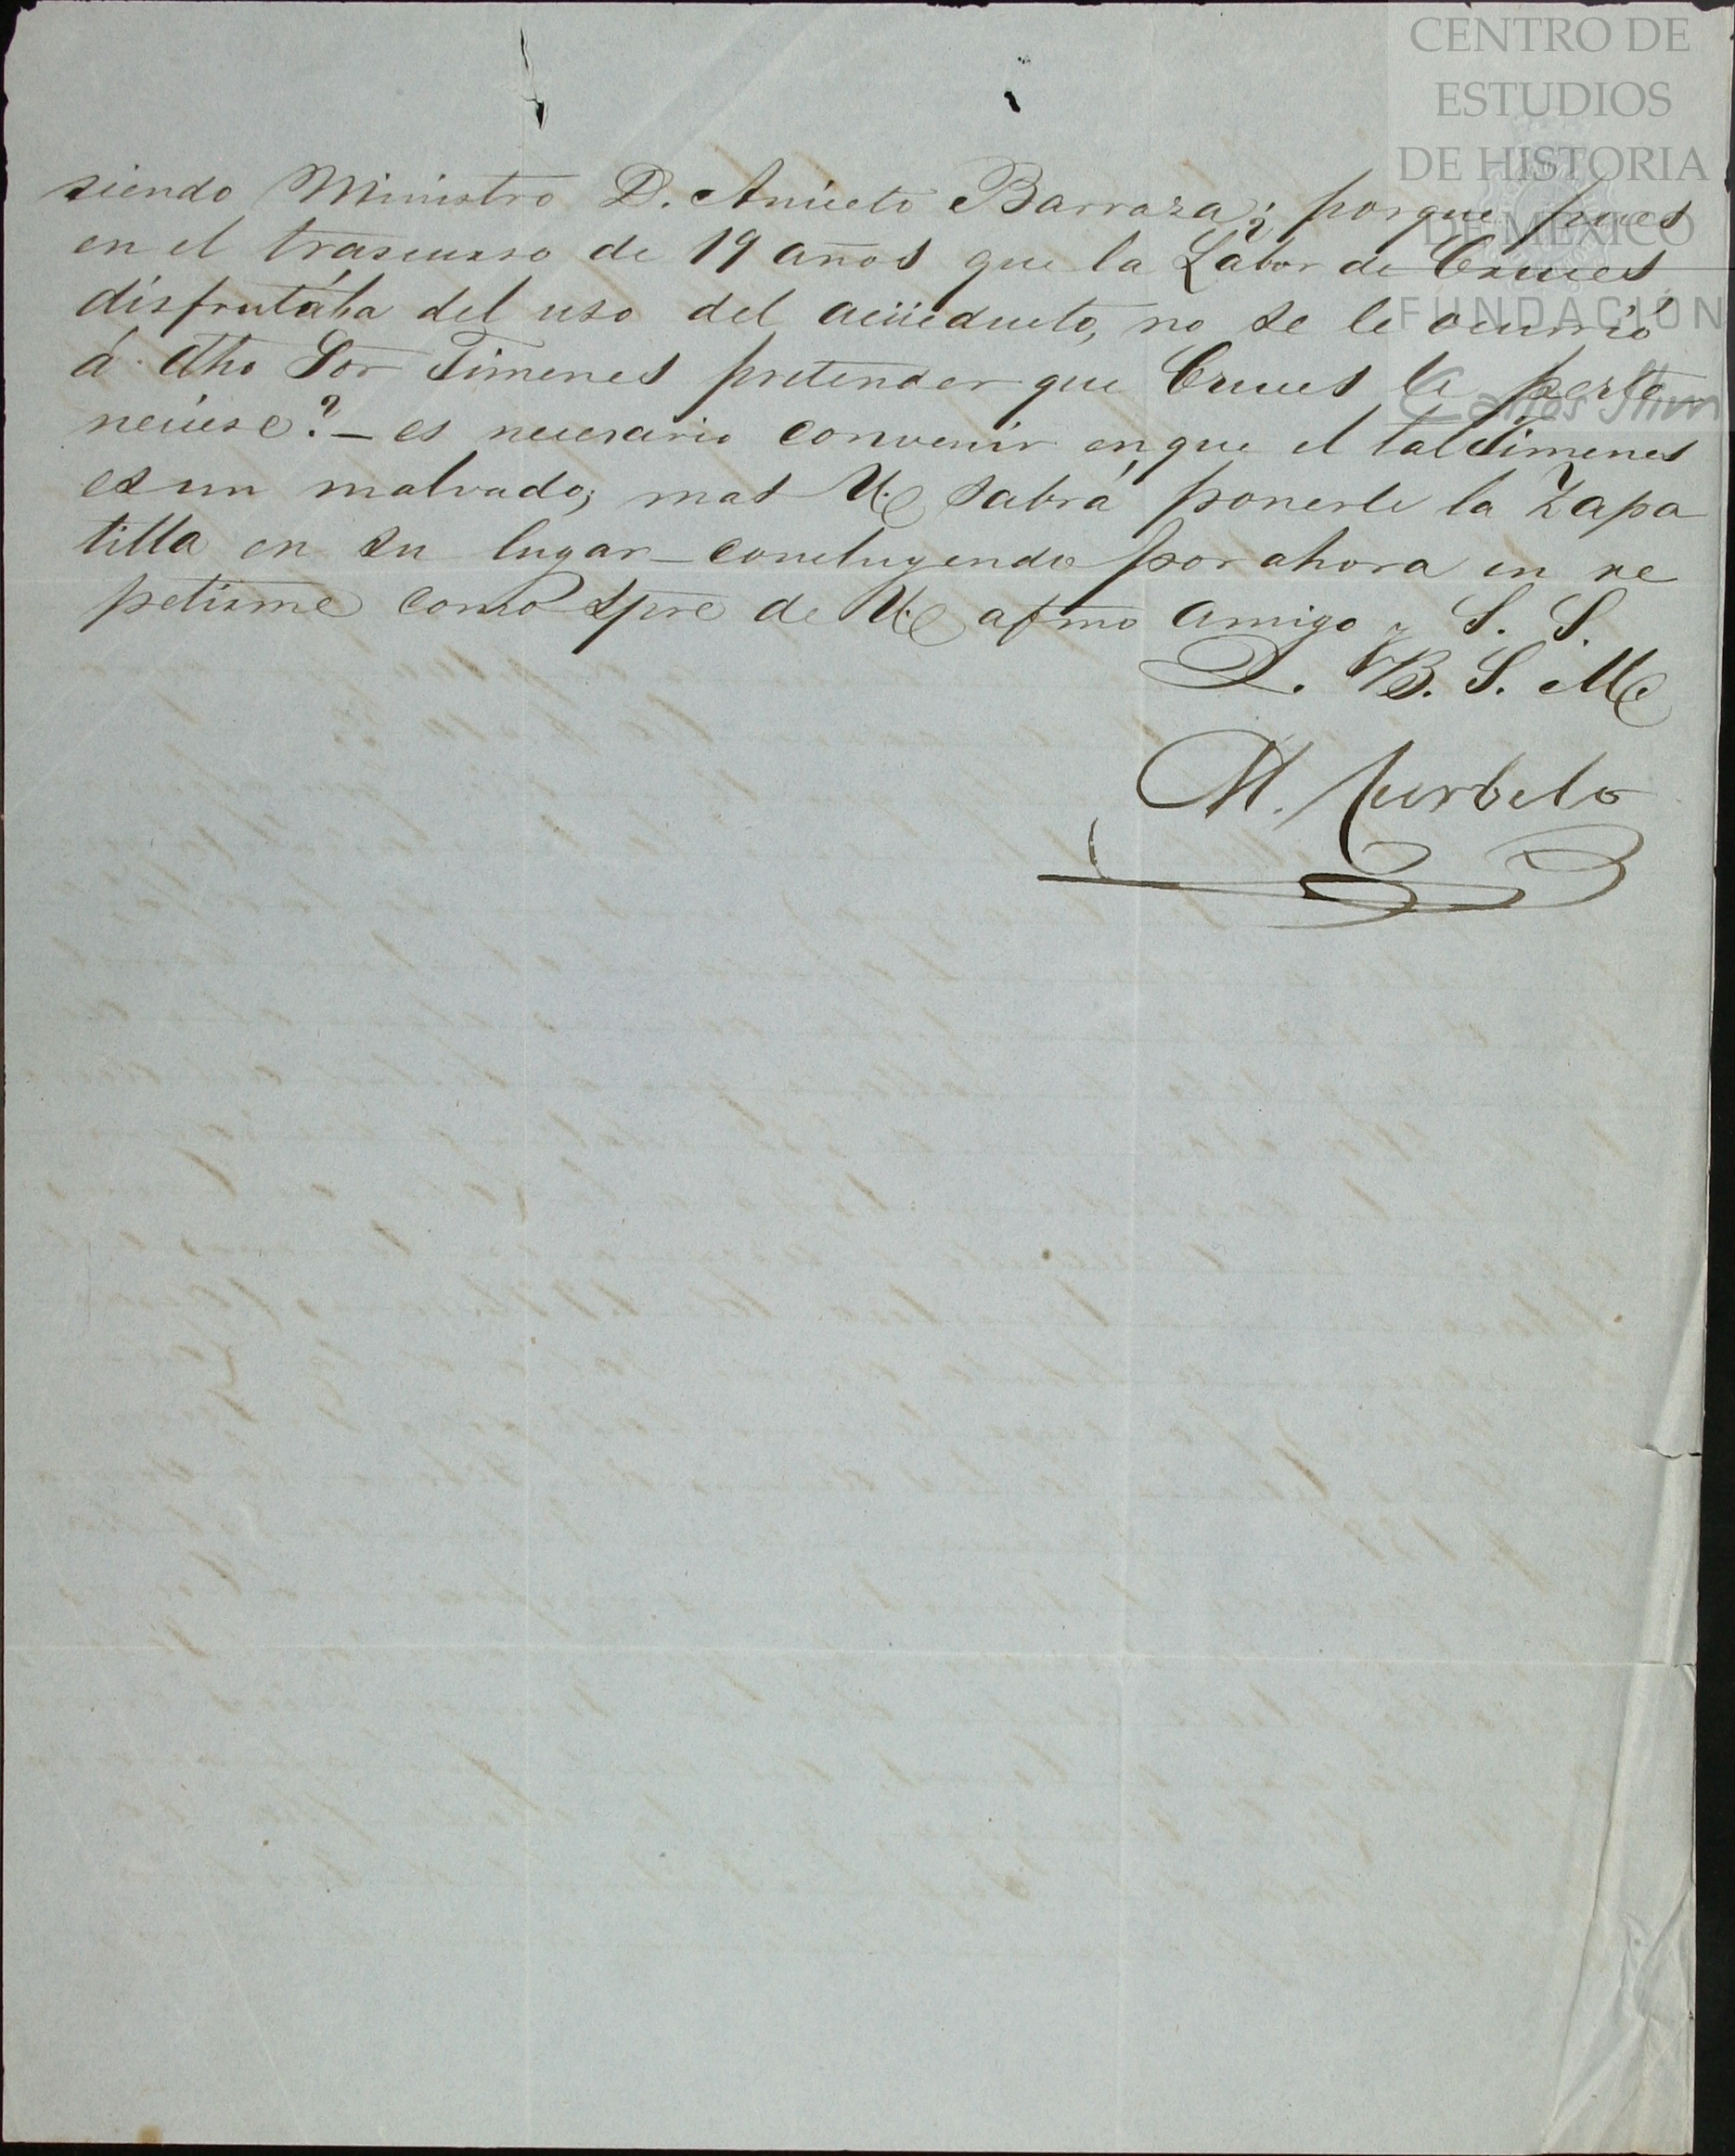 CENTRO DE
ESTUDIOS
DE HISTORIA
DE MÉXICO
FUNDACIÓN
Carlos Slim
siendo Ministro D. Aniceto Barraza; ¿porque pues
en el trascurso de 19 años que la Labor de Cruces
disfrutába del uso del acüeducto, no se le ocurrió
á dho Sor Jimenes pretender que Cruces le perte
neciese? — es necesario convenir en que el tal Jimenes
es un malvado; mas U. sabrá ponerle la zapa
tilla en su lugar — concluyendo por ahora en re
petirme como spre de U. afmo amigo y S. S.
Q. B. S. M.
M.